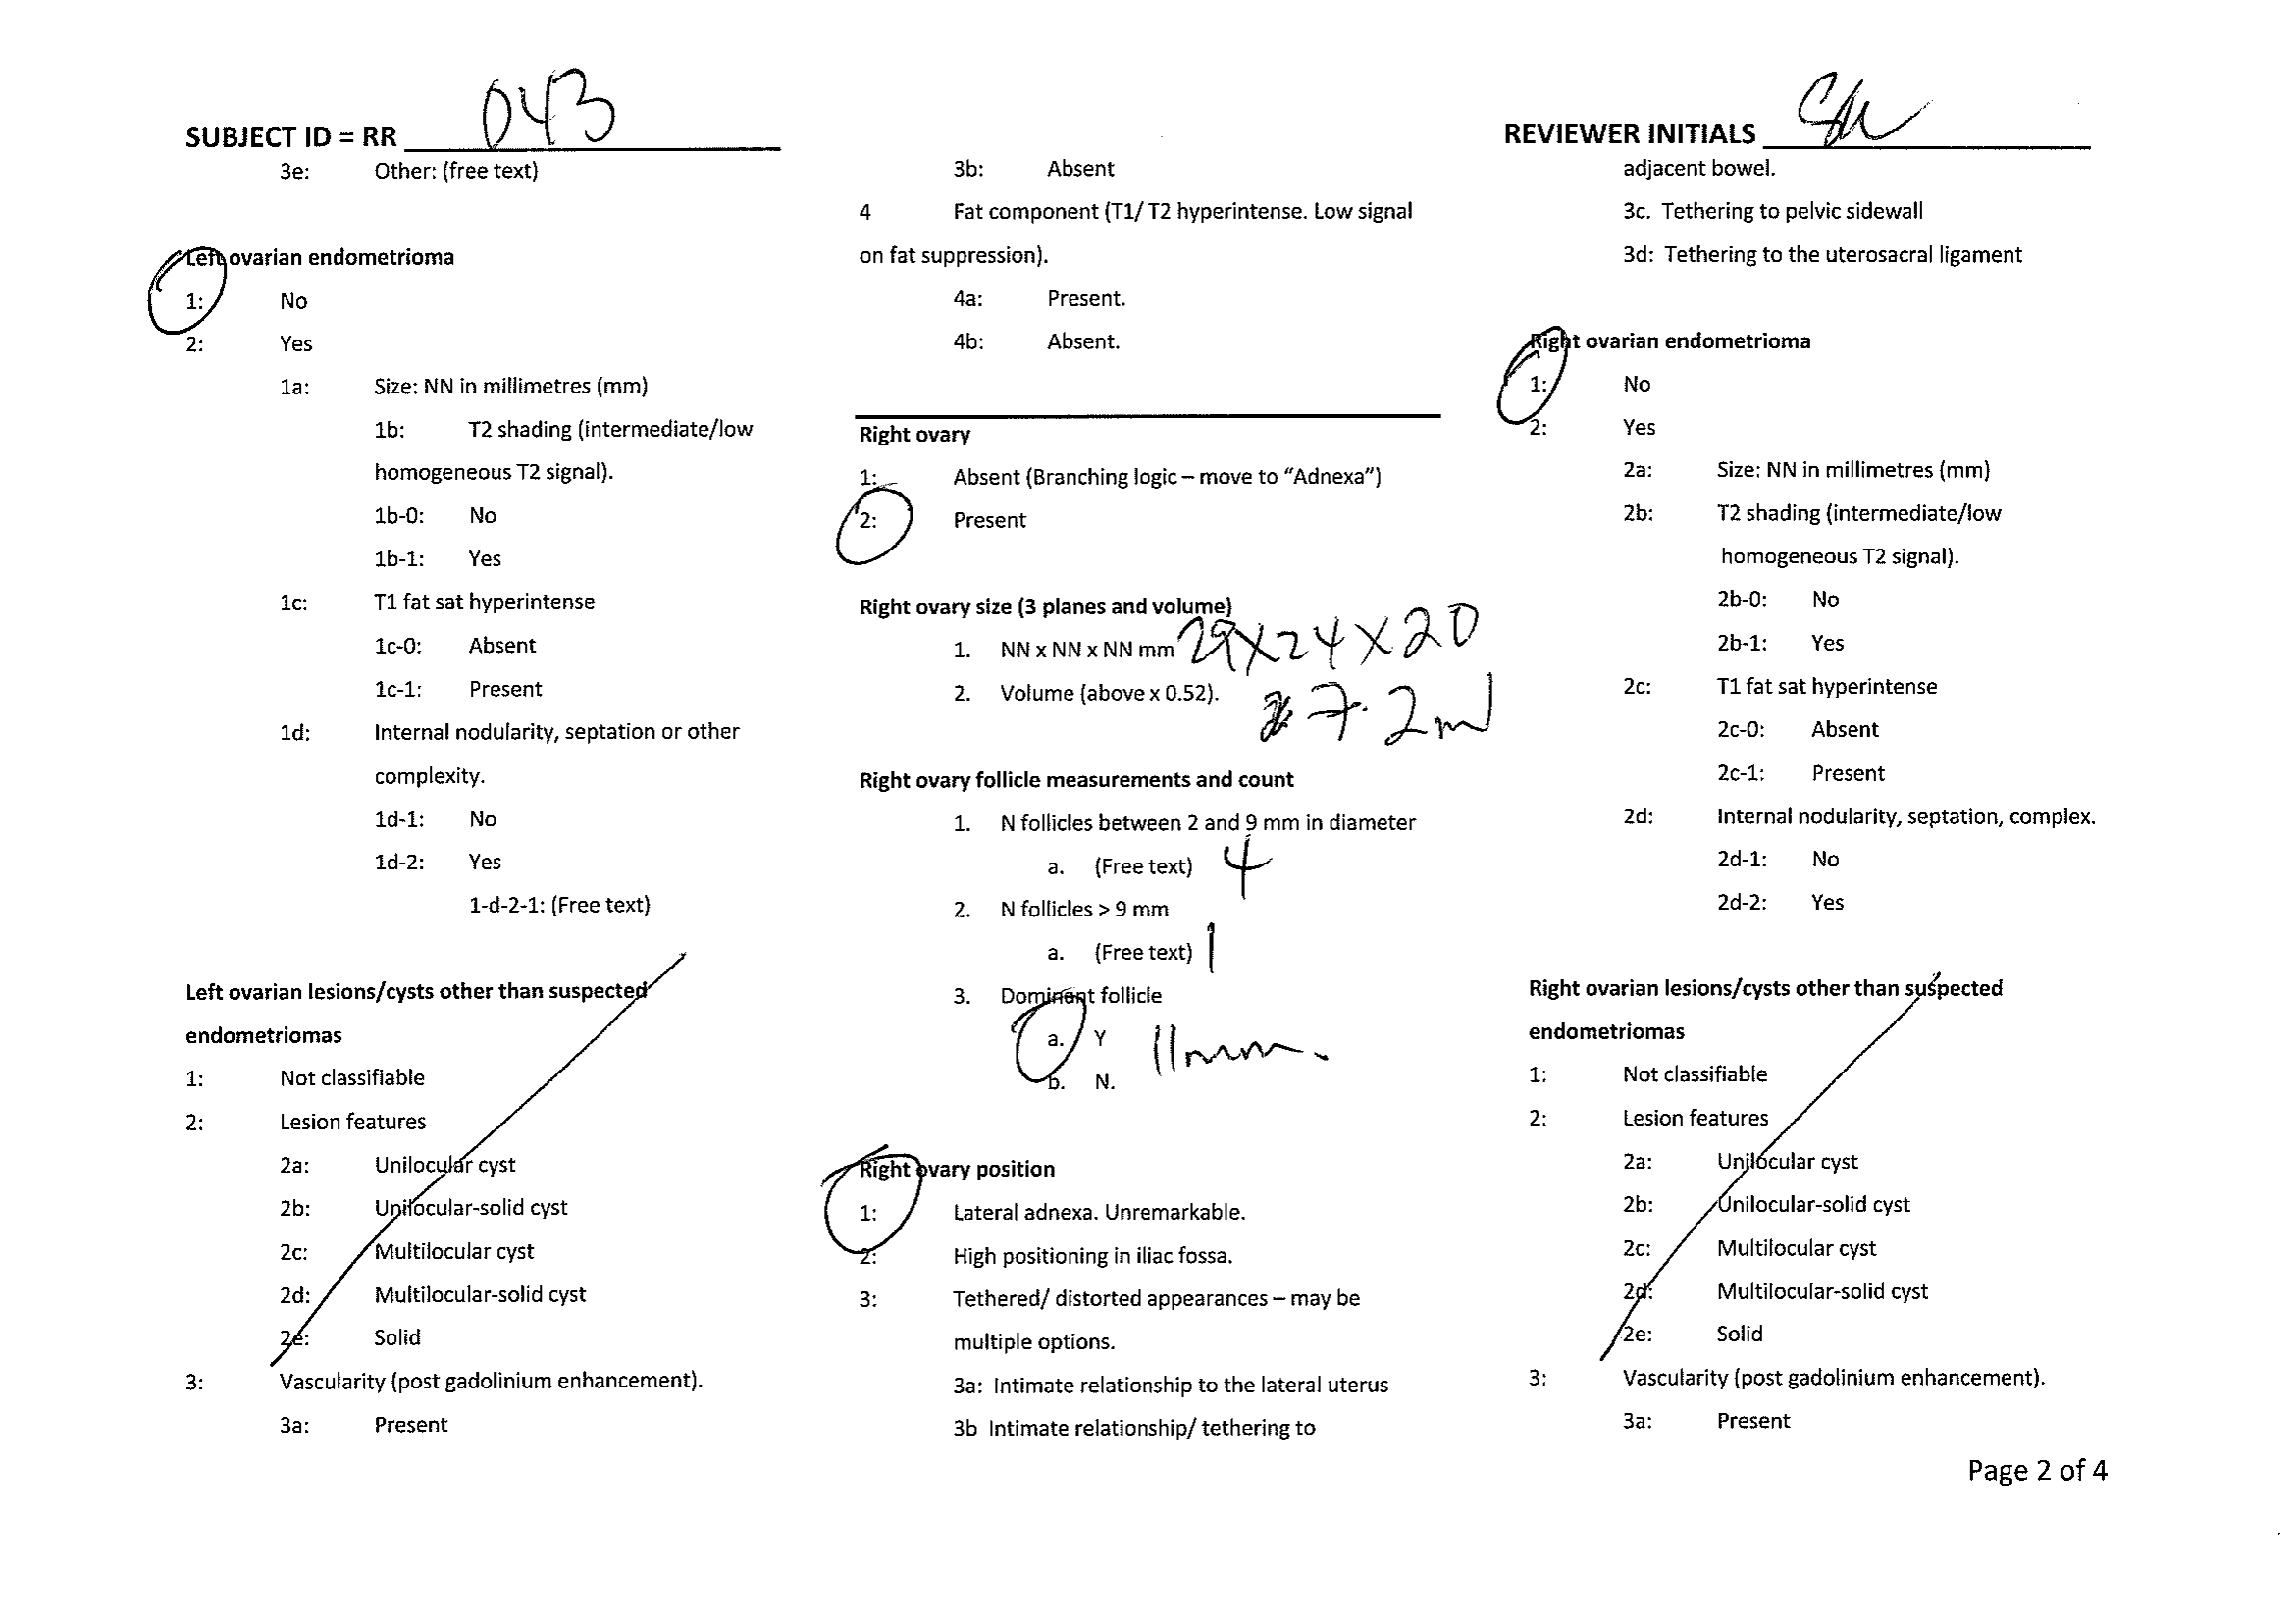 SUBJECT ID = RR 043
3e: Other: (free text)
Left ovarian endometrioma
1: No
2: Yes
1a: Size: NN in millimetres (mm)
1b: T2 shading (intermediate/low
homogeneous T2 signal).
1b-0: No
1b-1: Yes
1c: T1 fat sat hyperintense
1c-0: Absent
1c-1: Present
1d: Internal nodularity, septation or other
complexity.
1d-1: No
1d-2: Yes
1-d-2-1: (Free text)
Left ovarian lesions/cysts other than suspected
endometriomas
1: Not classifiable
2: Lesion features
2a: Unilocular cyst
2b: Unilocular-solid cyst
2c: Multilocular cyst
2d: Multilocular-solid cyst
2e: Solid
3: Vascularity (post gadolinium enhancement).
3a: Present
3b: Absent
4 Fat component (T1/ T2 hyperintense. Low signal
on fat suppression).
4a: Present.
4b: Absent.
Right ovary
1: Absent (Branching logic – move to “Adnexa”)
2: Present
Right ovary size (3 planes and volume)
1. NN x NN x NN mm 29X24X20
2. Volume (above x 0.52). 7.2ml
Right ovary follicle measurements and count
1. N follicles between 2 and 9 mm in diameter
a. (Free text) 4
2. N follicles > 9 mm
a. (Free text) 1
3. Dominant follicle
a. Y 11mm.
b. N.
Right ovary position
1: Lateral adnexa. Unremarkable.
2: High positioning in iliac fossa.
3: Tethered/ distorted appearances – may be
multiple options.
3a: Intimate relationship to the lateral uterus
3b Intimate relationship/ tethering to
REVIEWER INITIALS
adjacent bowel.
3c. Tethering to pelvic sidewall
3d: Tethering to the uterosacral ligament
Right ovarian endometrioma
1: No
2: Yes
2a: Size: NN in millimetres (mm)
2b: T2 shading (intermediate/low
homogeneous T2 signal).
2b-0: No
2b-1: Yes
2c: T1 fat sat hyperintense
2c-0: Absent
2c-1: Present
2d: Internal nodularity, septation, complex.
2d-1: No
2d-2: Yes
Right ovarian lesions/cysts other than suspected
endometriomas
1: Not classifiable
2: Lesion features
2a: Unilocular cyst
2b: Unilocular-solid cyst
2c: Multilocular cyst
2d: Multilocular-solid cyst
2e: Solid
3: Vascularity (post gadolinium enhancement).
3a: Present
Page 2 of 4